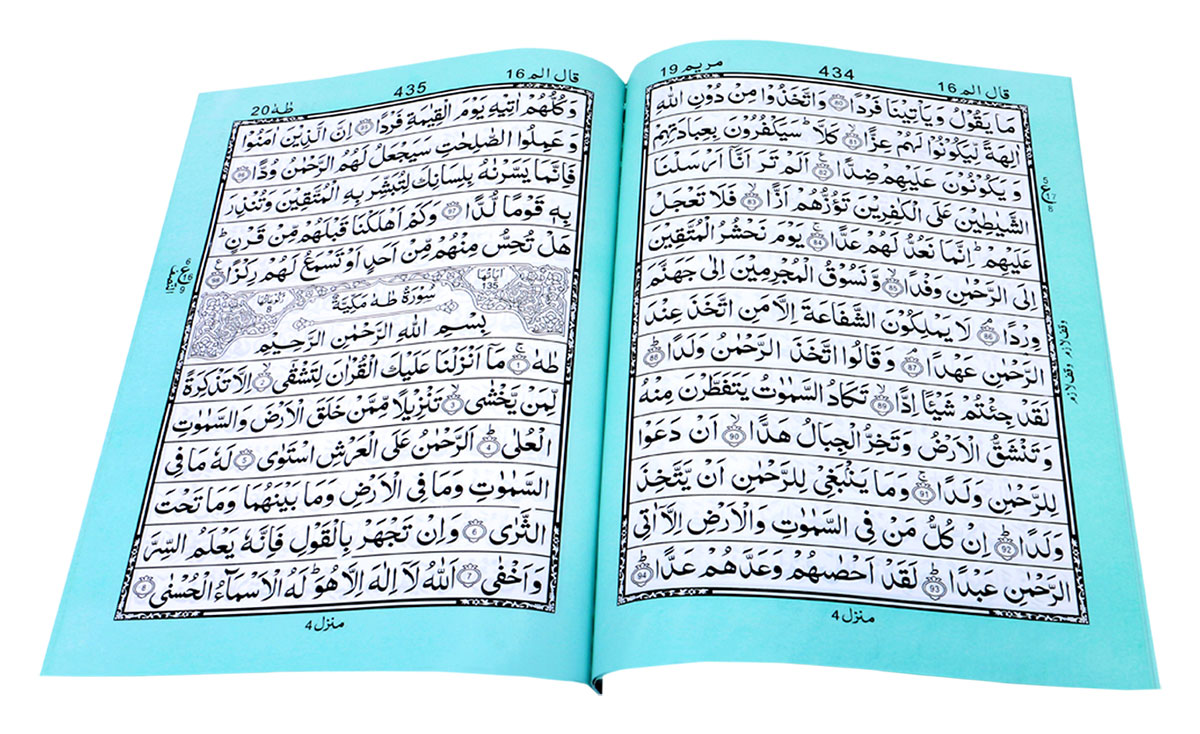 قال الم 16
434
مريم 19
مَا يَقُوْلُ وَيَاْتِيْنَا فَرْدًا 80 وَاتَّخَذُوْا مِنْ دُوْنِ اللّٰهِ
اٰلِهَةً لِّيَكُوْنُوْا لَهُمْ عِزًّا 81 كَلَّا سَيَكْفُرُوْنَ بِعِبَادَتِهِمْ
وَ يَكُوْنُوْنَ عَلَيْهِمْ ضِدًّا 82 اَلَمْ تَرَ اَنَّاۤ اَرْسَلْنَا
الشَّيٰطِيْنَ عَلَى الْكٰفِرِيْنَ تَؤُزُّهُمْ اَزًّا 83 فَلَا تَعْجَلْ
عَلَيْهِمْ اِنَّمَا نَعُدُّ لَهُمْ عَدًّا 84 يَوْمَ نَحْشُرُ الْمُتَّقِيْنَ
اِلَى الرَّحْمٰنِ وَفْدًا 85 وَّنَسُوْقُ الْمُجْرِمِيْنَ اِلٰى جَهَنَّمَ
وِرْدًا 86 لَا يَمْلِكُوْنَ الشَّفَاعَةَ اِلَّا مَنِ اتَّخَذَ عِنْدَ
الرَّحْمٰنِ عَهْدًا 87 وَقَالُوا اتَّخَذَ الرَّحْمٰنُ وَلَدًا 88
لَقَدْ جِئْتُمْ شَيْـًٔا اِدًّا 89 تَكَادُ السَّمٰوٰتُ يَتَفَطَّرْنَ مِنْهُ
وَتَنْشَقُّ الْاَرْضُ وَتَخِرُّ الْجِبَالُ هَدًّا 90 اَنْ دَعَوْا
لِلرَّحْمٰنِ وَلَدًا 91 وَمَا يَنْۢبَغِيْ لِلرَّحْمٰنِ اَنْ يَّتَّخِذَ
وَلَدًا 92 اِنْ كُلُّ مَنْ فِى السَّمٰوٰتِ وَالْاَرْضِ اِلَّاۤ اٰتِى
الرَّحْمٰنِ عَبْدًا 93 لَقَدْ اَحْصٰىهُمْ وَعَدَّهُمْ عَدًّا 94
وقف لازم وقف لازم
منزل 4
قال الم 16
435
طٰهٰ 20
وَكُلُّهُمْ اٰتِيْهِ يَوْمَ الْقِيٰمَةِ فَرْدًا 95 اِنَّ الَّذِيْنَ اٰمَنُوْا
وَعَمِلُوا الصّٰلِحٰتِ سَيَجْعَلُ لَهُمُ الرَّحْمٰنُ وُدًّا 96
فَاِنَّمَا يَسَّرْنٰهُ بِلِسَانِكَ لِتُبَشِّرَ بِهِ الْمُتَّقِيْنَ وَتُنْذِرَ
بِهٖ قَوْمًا لُّدًّا 97 وَكَمْ اَهْلَكْنَا قَبْلَهُمْ مِّنْ قَرْنٍ
هَلْ تُحِسُّ مِنْهُمْ مِّنْ اَحَدٍ اَوْ تَسْمَعُ لَهُمْ رِكْزًا 98
اٰيَاتُهَا 135
سُوْرَةُ طٰهٰ مَكِّيَّةٌ
رُكُوْعَاتُهَا 8
بِسْمِ اللّٰهِ الرَّحْمٰنِ الرَّحِيْمِ
طٰهٰ 1 مَاۤ اَنْزَلْنَا عَلَيْكَ الْقُرْاٰنَ لِتَشْقٰۤى 2 اِلَّا تَذْكِرَةً
لِّمَنْ يَّخْشٰى 3 تَنْزِيْلًا مِّمَّنْ خَلَقَ الْاَرْضَ وَالسَّمٰوٰتِ
الْعُلٰى 4 اَلرَّحْمٰنُ عَلَى الْعَرْشِ اسْتَوٰى 5 لَهٗ مَا فِى
السَّمٰوٰتِ وَمَا فِى الْاَرْضِ وَمَا بَيْنَهُمَا وَمَا تَحْتَ
الثَّرٰى 6 وَاِنْ تَجْهَرْ بِالْقَوْلِ فَاِنَّهٗ يَعْلَمُ السِّرَّ
وَاَخْفٰى 7 اَللّٰهُ لَاۤ اِلٰهَ اِلَّا هُوَ لَهُ الْاَسْمَآءُ الْحُسْنٰى 8
منزل 4